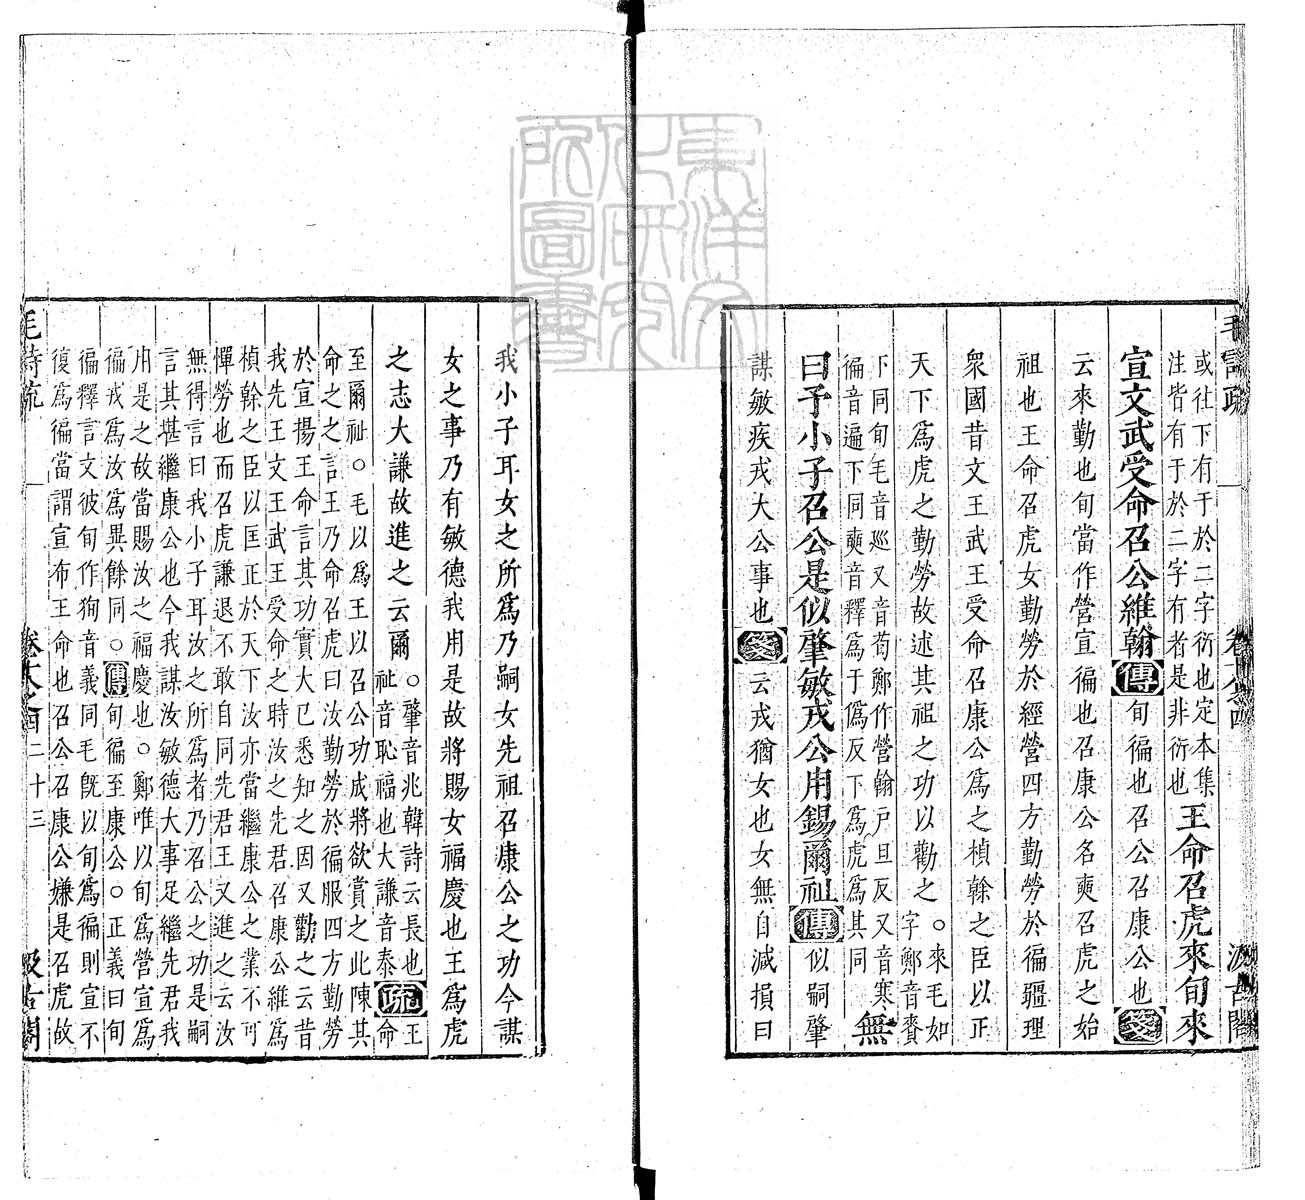 毛詩疏 卷十八之四 汲古閣
或往下有于於二字衍也定本集
注皆有于於二字有者是非衍也
王命召虎來旬來
宣文武受命召公維翰傳旬徧也召公召康公也箋
云來勤也旬當作營宣徧也召康公名奭召虎之始
祖也王命召虎女勤勞於經營四方勤勞於徧疆理
衆國昔文王武王受命召康公爲之楨榦之臣以正
天下爲虎之勤勞故述其祖之功以勸之
○來毛如
字鄭音賚
下同旬毛音巡又音荀鄭作營翰戸旦反又音寒
徧音遍下同奭音釋爲于僞反下爲虎爲其同
無
曰予小子召公是似肇敏戎公用錫爾祉傳似嗣肇
謀敏疾戎大公事也箋云戎猶女也女無自減損曰
我小子耳女之所爲乃嗣女先祖召康公之功今謀
女之事乃有敏德我用是故將賜女福慶也王爲虎
之志大謙故進之云爾
○肇音兆韓詩云長也
祉音恥福也大謙音泰
疏
王
命
至爾祉○毛以爲王以召公功成將欲賞之此陳其
命之之言王乃命召虎曰汝勤勞於徧服四方勤勞
於宣揚王命言其功實大已悉知之因又勸之云昔
我先王文王武王受命之時汝之先君召康公維爲
楨榦之臣以匡正於天下汝亦當繼康公之業不可
憚勞也而召虎謙退不敢自同先君王又進之云汝
無得言曰我小子耳汝之所爲者乃召公之功是嗣
言其堪繼康公也今我謀汝敏德大事足繼先君我
用是之故當賜汝之福慶也○鄭唯以旬爲營宣爲
徧戎爲汝爲異餘同○傳旬徧至康公○正義曰旬
徧釋言文彼旬作徇音義同毛旣以旬爲徧則宣不
復爲徧當謂宣布王命也召公召康公嫌是召虎故
毛詩疏 卷十八之四 二十三 汲古閣